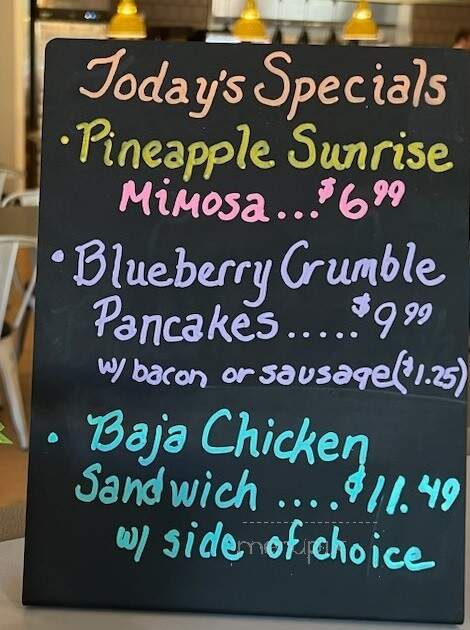 Today's Specials
• Pineapple Sunrise
Mimosa...$6.99
• Blueberry Crumble
Pancakes.....$9.99
w/ bacon or sausage($1.25)
• Baja Chicken
Sandwich ....$11.49
w/ side of choice
menupix